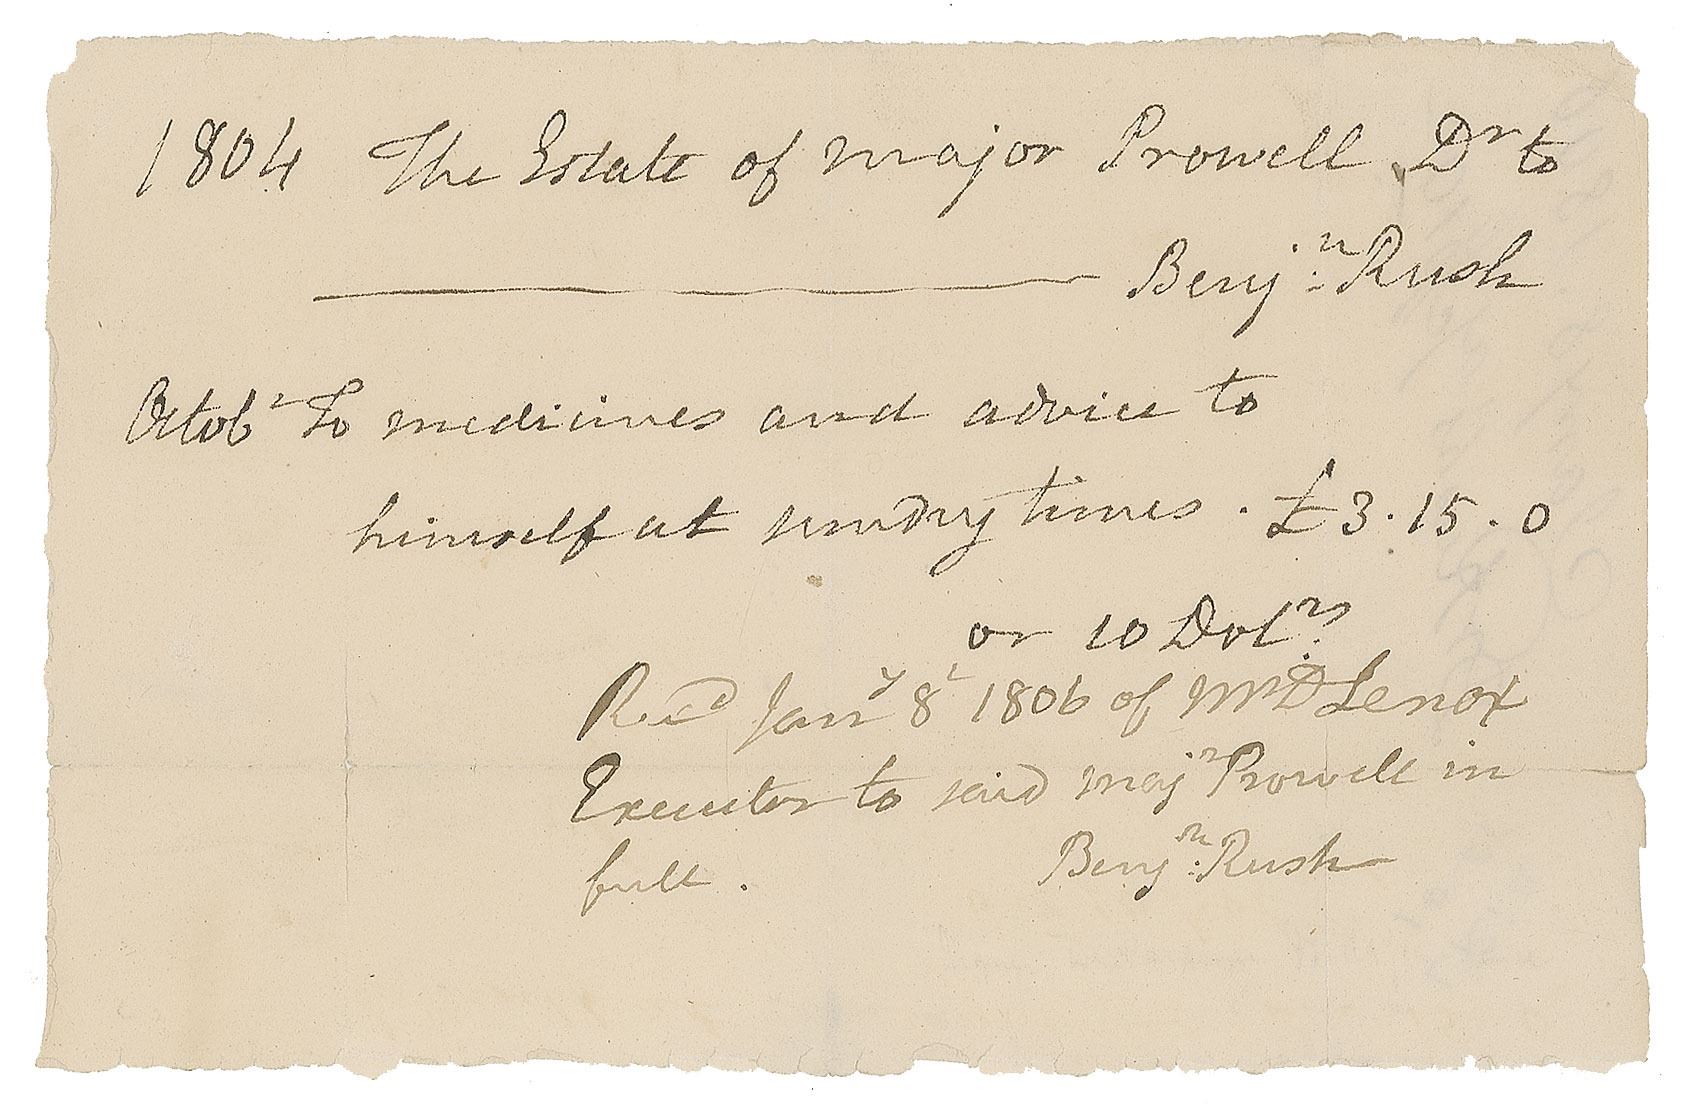 1804 The Estate of major Prowell Dr to
Benjn: Rush
Octobr To medicines and advice to
himself at sundry times . £3.15.0
or 10 Dolrs.
Recd Jany 8t 1806 of Mr D Lenox
Executor to said Majr Prowell in
full . Benjn: Rush